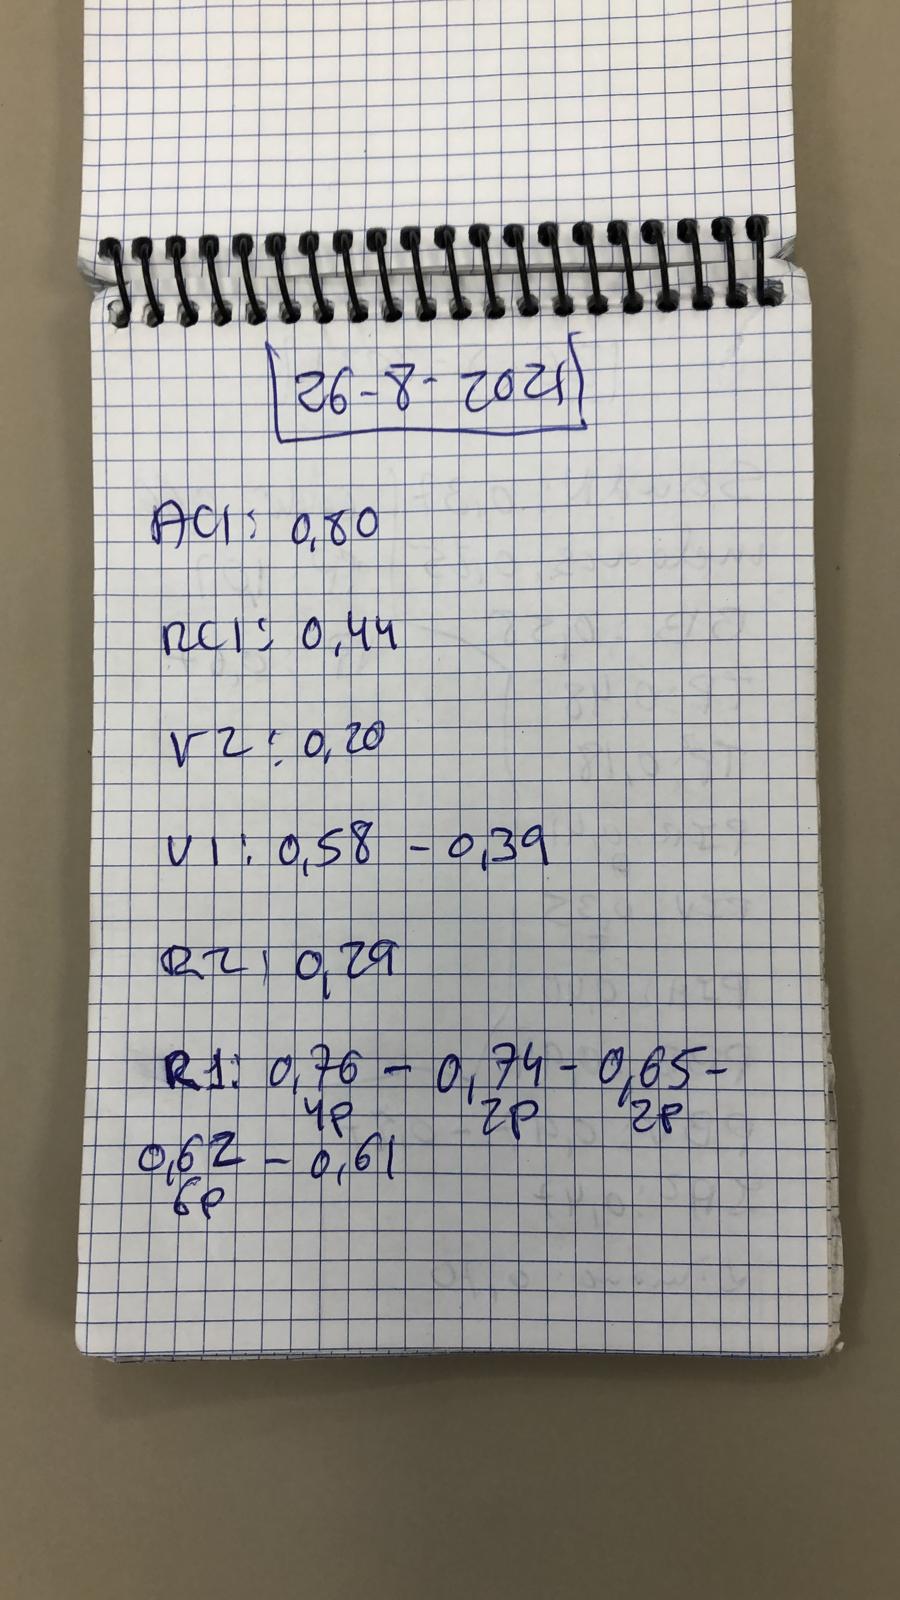 26-8-2021
AC1: 0,80
RC1: 0,44
V2: 0,20
V1: 0,58 - 0,39
R2: 0,29
R1: 0,76 - 0,74 - 0,65 -
4p 2p 2p
0,62 - 0,61
6p